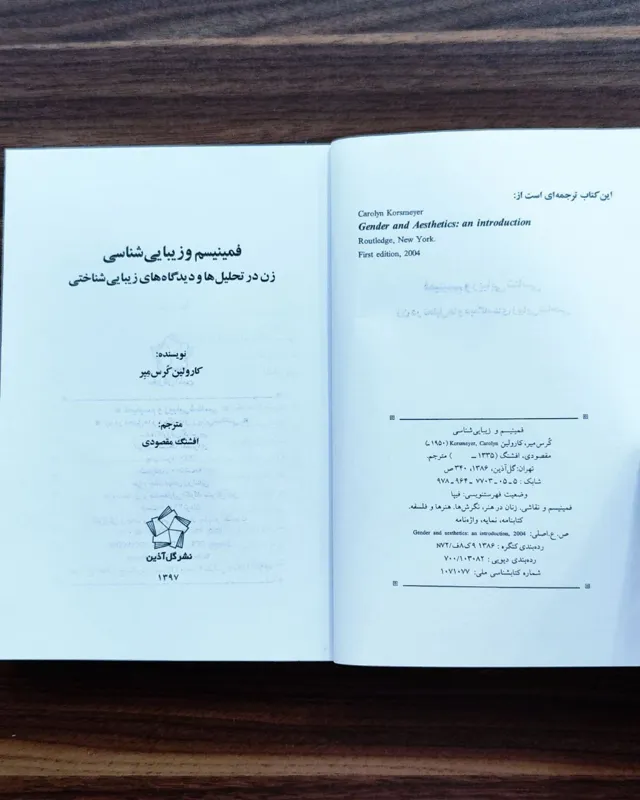 این کتاب ترجمه‌ای است از:
Carolyn Korsmeyer
Gender and Aesthetics: an introduction
Routledge, New York.
First edition, 2004
فمینیسم و زیبایی‌شناسی
کُرس‌میر، کارولین Korsmeyer, Carolyn (۱۹۵۰ـ)
مقصودی، افشنگ (۱۳۳۵ ـ ) مترجم.
تهران: گل‌آذین، ۱۳۸۶، ۳۴۰ ص
شابک : ۵ ـ ۰۵ ـ ۷۷۰۳ ـ ۹۶۴ ـ ۹۷۸
وضعیت فهرستنویسی: فیپا
فمینیسم و نقاشی. زنان در هنر، نگرش‌ها. هنرها و فلسفه.
کتابنامه، نمایه، واژه‌نامه
ص. ع. اصلی: Gender and aesthetics: an introduction, 2004
رده‌بندی کنگره : ۱۳۸۶ ۹ک۸ف/N۷۲
رده‌بندی دیویی : ۷۰۰/۱۰۳۰۸۲
شماره کتابشناسی ملی: ۱۰۷۱۰۷۷
فمینیسم و زیبایی‌شناسی
زن در تحلیل‌ها و دیدگاه‌های زیبایی‌شناختی
نویسنده:
کارولین کُرس‌میِر
مترجم:
افشنگ مقصودی
نشر گل‌آذین
۱۳۹۷